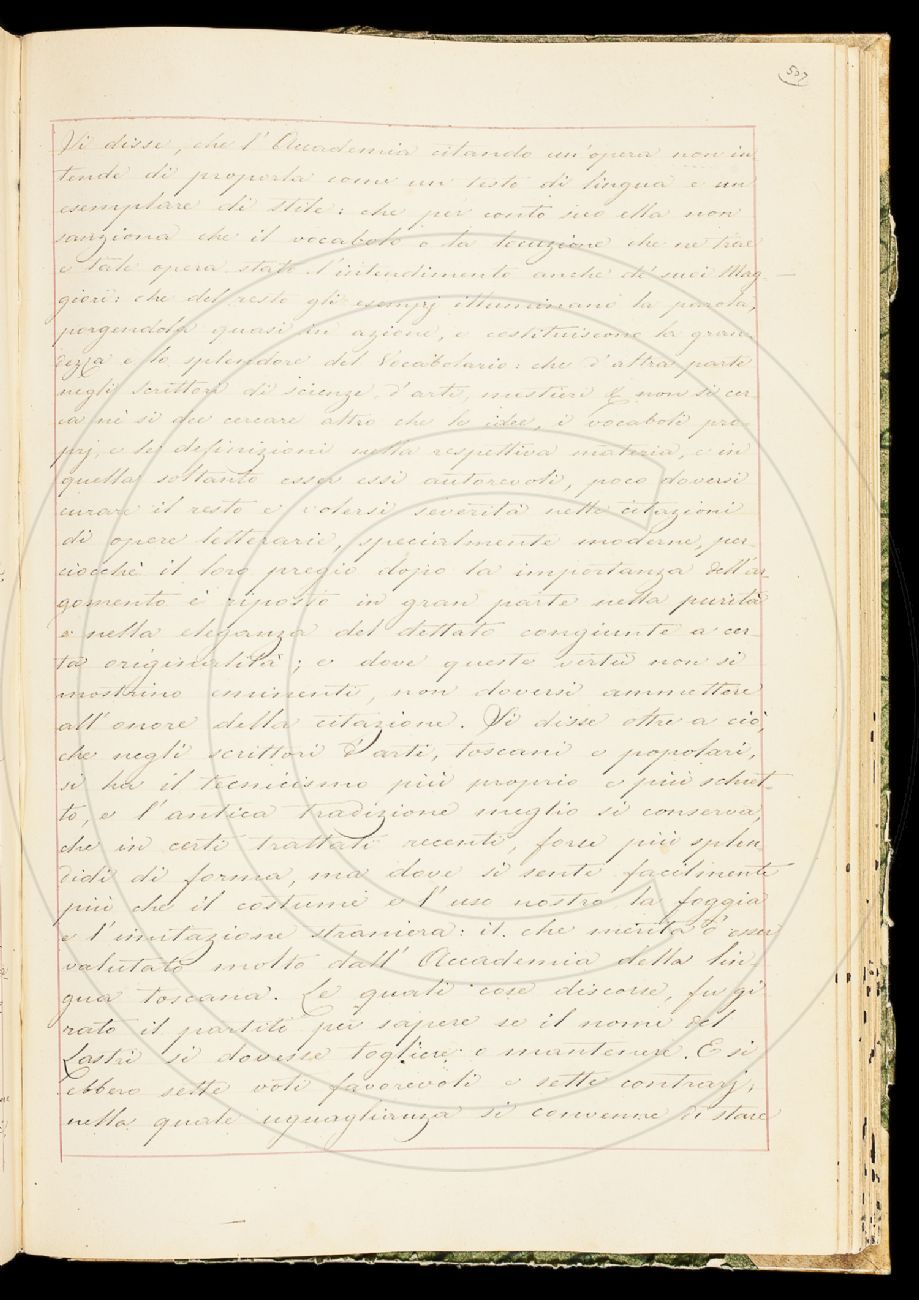 507
Vi disse, che l'Accademia citando un'opera non in
tende di proporla come un testo di lingua e un
esemplare di stile: che per conto suo ella non
sanziona che il vocabolo o la locuzione che ne trae
e tale opera stato l'intendimento anche de' suoi Mag
giori: che del resto gli esempj illuminano la parola,
porgendola quasi in azione, e costituiscono la gran
dezza e lo splendore del Vocabolario: che d'altra parte
negli scrittori di scienze d'arti, mestieri &c non si cer
ca nè si dee cercare altro che le idee, i vocaboli pro-
prj, e le definizioni nella respettiva materia, e in
quella soltanto esser essi autorevoli, poco doversi
curare il resto e volersi severità nelle citazioni
di opere letterarie, specialmente moderne, per-
ciocchè il loro pregio dopo la importanza dell'ar-
gomento è riposto in gran parte nella purità
e nella eleganza del dettato congiunte a cer-
ta originalità; e dove queste virtù non si
mostrino eminenti, non doversi ammettere
all'onore della citazione. Vi disse oltre a ciò,
che negli scrittori d'arti, toscani e popolari,
si ha il tecnicismo più proprio e più schiet-
to, e l'antica tradizione meglio si conserva,
che in certi trattati recenti, forse più splen
didi di forma, ma dove si sente facilmente
più che il costume e l'uso nostro la foggia
e l'imitazione straniera: il che merita d'esser
valutato molto dall'Accademia della lin-
gua toscana. Le quali cose discorse, fu gi
rato il partito per sapere se il nome del
Lastri si dovesse togliere o mantenere. E si
ebbero sette voti favorevoli e sette contrarj;
nella quale uguaglianza si convenne di stare